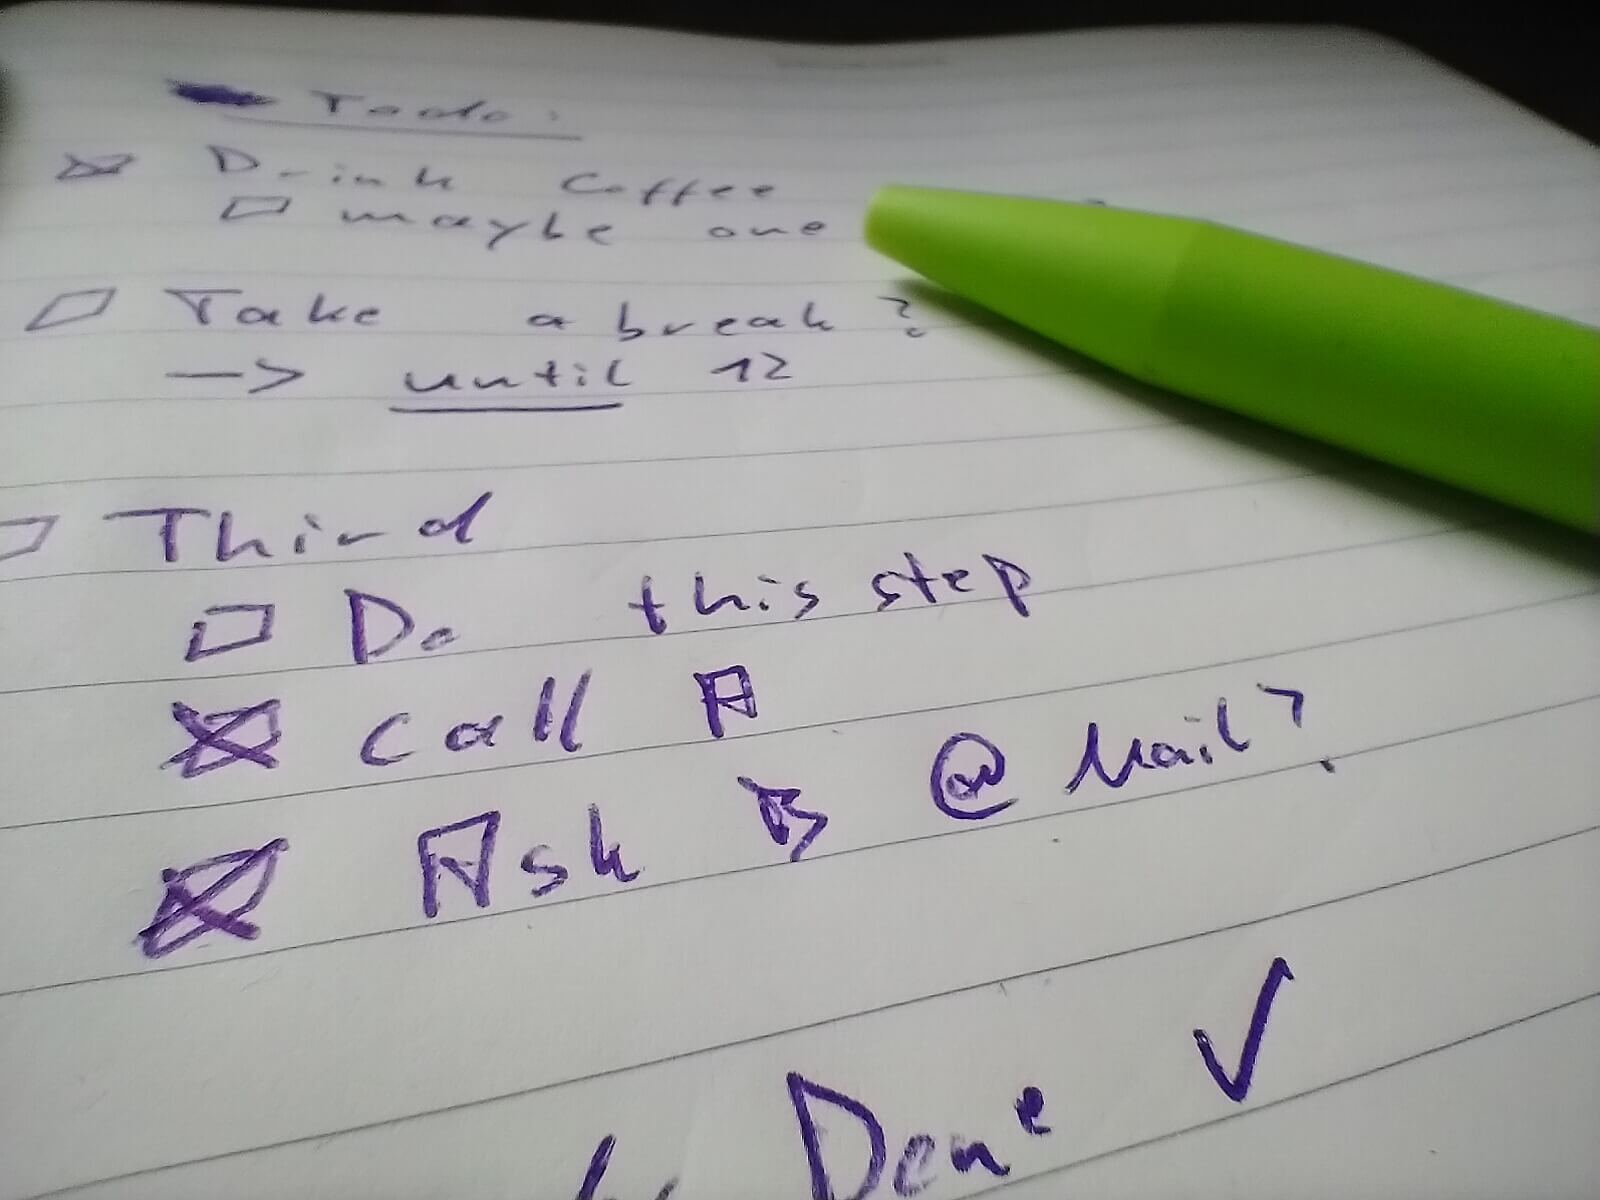 Todo:
☒ Drink Coffee
☐ maybe one
☐ Take a break?
-> until 12
☐ Third
☐ Do this step
☒ Call A
☒ Ask B @ Mail?
Done ✓